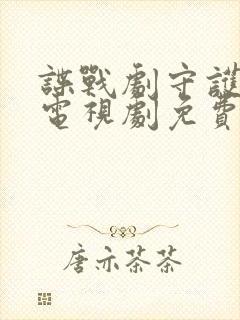 諜戰劇守護
電視劇免費
唐亦茶茶